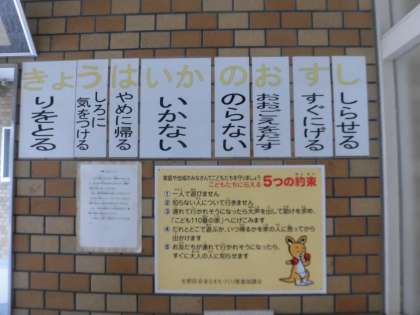 きょうはいかのおすし
りをとる
しろに
気をつける
やめに帰る
いかない
のらない
おおごえをだす
すぐにげる
しらせる
家庭や地域のみなさんでこどもたちを守りましょう!
こどもたちに伝える 5つの約束
① 一人で遊びません
② 知らない人について行きません
③ 連れて行かれそうになったら大声を出して助けを求め、
「こども110番の家」へにげこみます
④ だれとどこで遊ぶか、いつ帰るかを家の人に言ってから
出かけます
⑤ お友だちが連れて行かれそうになったら、
すぐに大人の人に知らせます